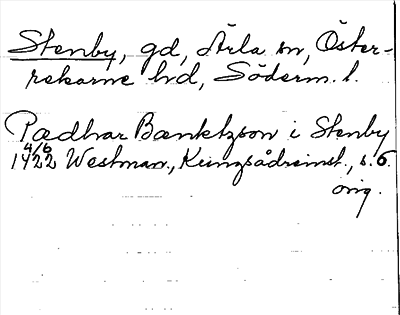 Stenby, gd, Ärla sn, Öster-
rekarne hd, Söderm. l.
Pædhar Bænktzson i Stenby
4/6
1422 Westman., Kungsådreinst., s. 6.
orig.